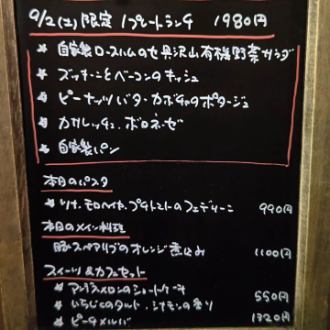 9/2(土)限定 1プレートランチ 1980円
★ 自家製ロースハムのせ 丹沢山有機野菜サラダ
★ ズッキーニとベーコンのキッシュ
★ ピーナッツバターカボチャのポタージュ
★ カサレッチェ、ボロネーゼ
★ 自家製パン
本日のパスタ
★ いわし、モロヘイヤ、プチトマトのフェデリーニ 990円
本日のメイン料理
豚スペアリブのオレンジ煮込み 1100円
スイーツ&カフェセット
★ アンデスメロンのショートケーキ
★ いちじくのタルト、シナモンの香り 550円
★ ピーチメルバ 1320円